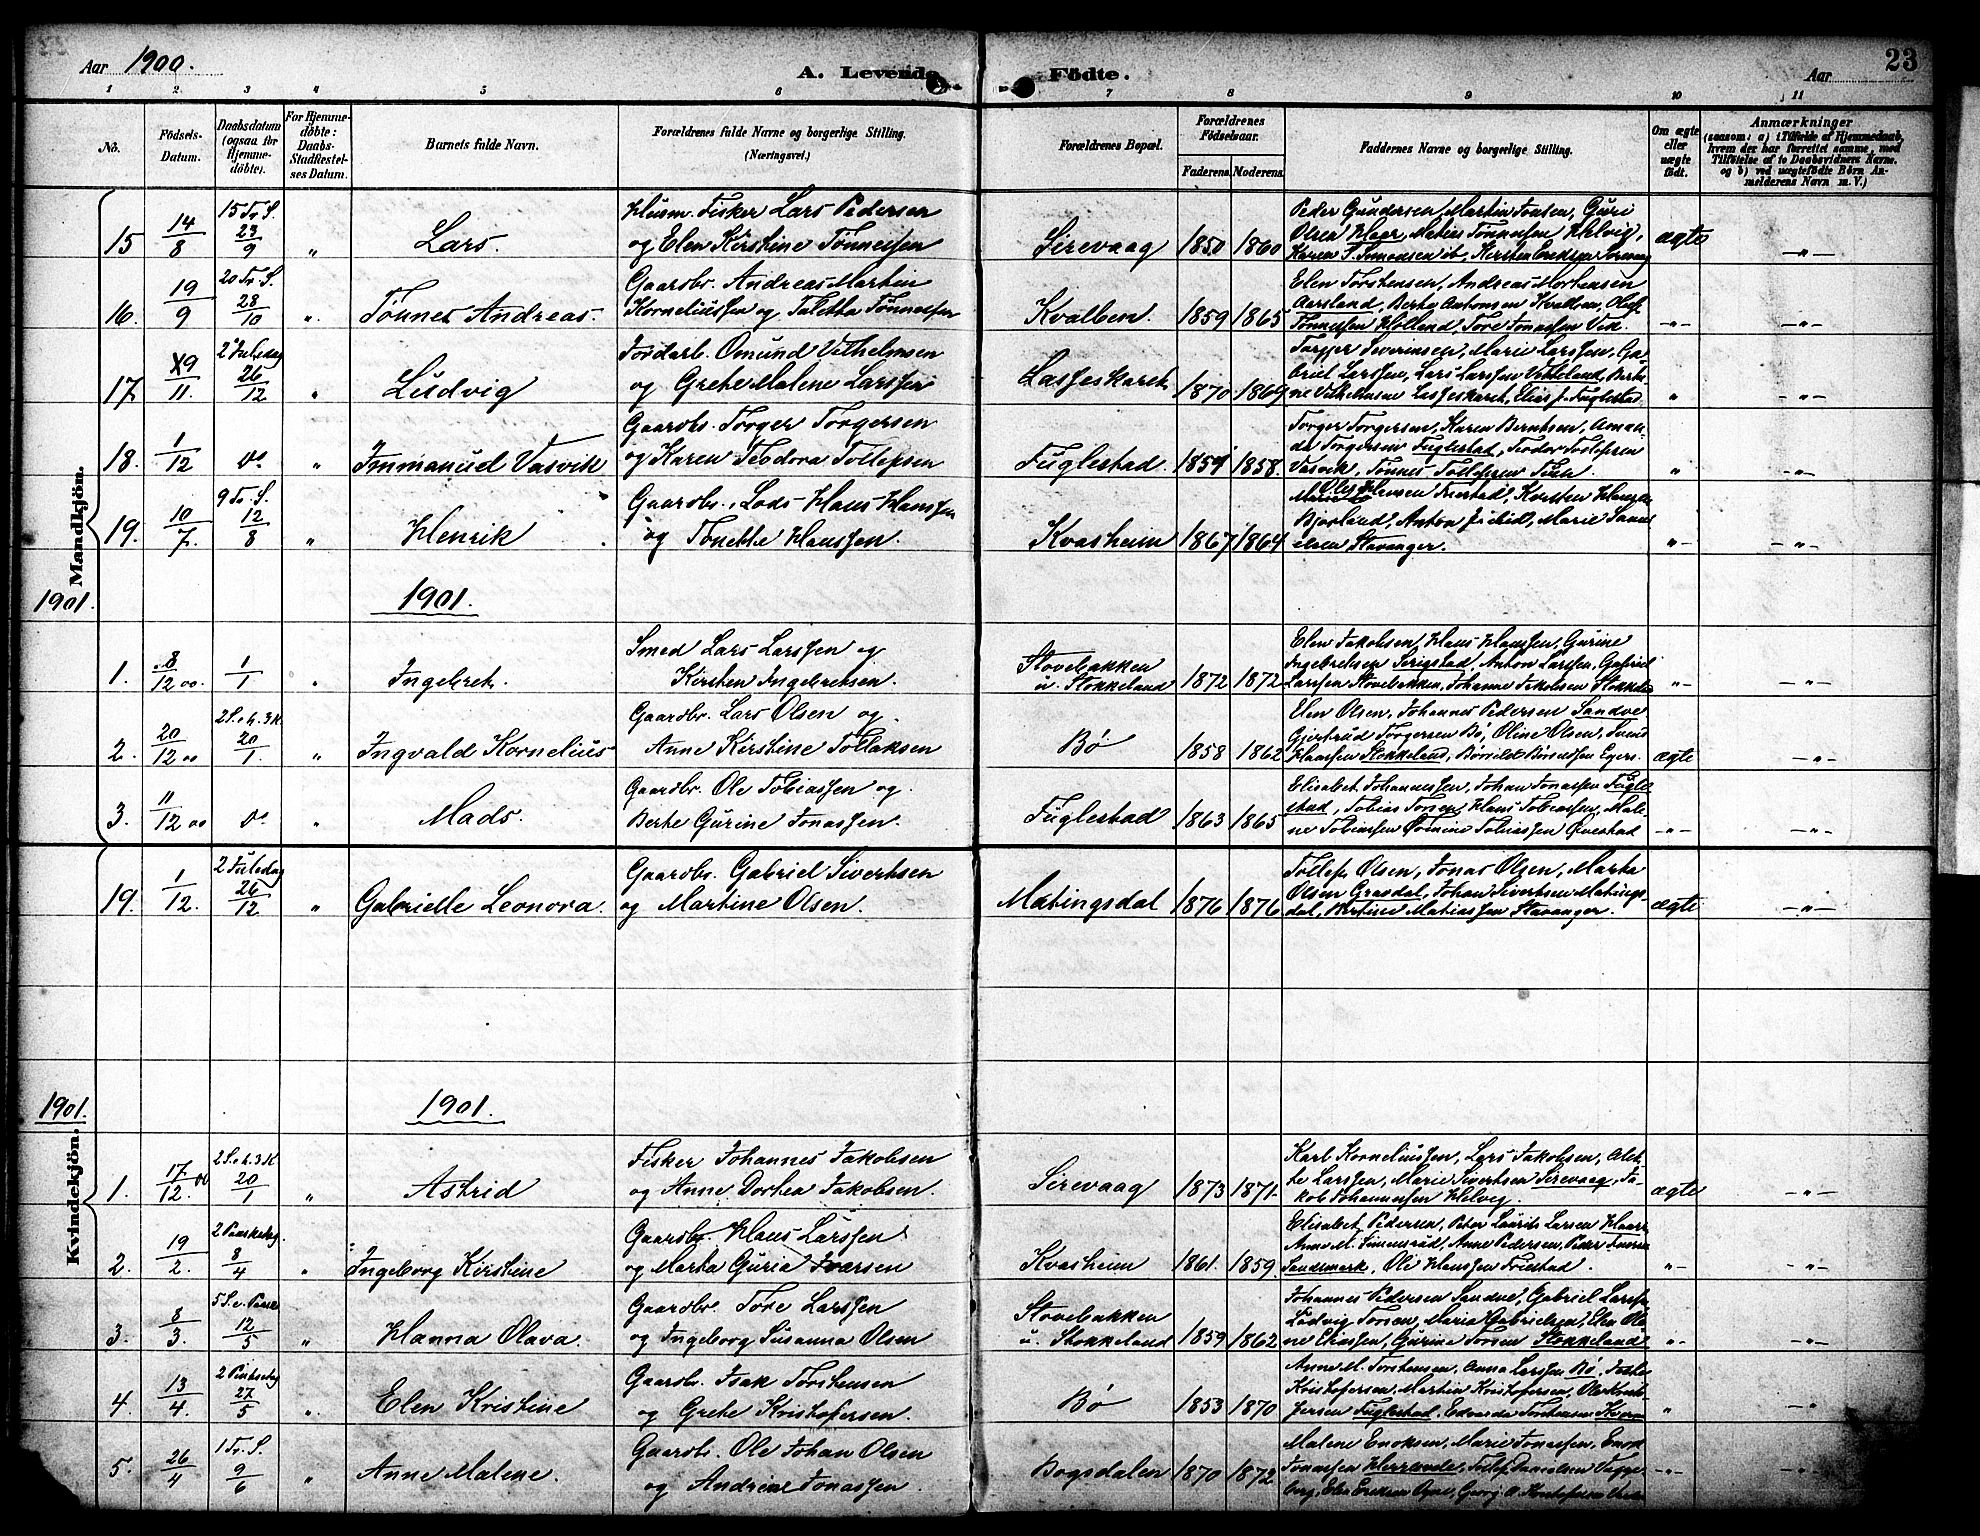 Aar 1900.
A. Levende Fødte.
Aar
23
1 2 3 4 5 6 7 8 9 10 11
No.
Födsels-
Datum.
Daabsdatum
(ogsaa for
Hjemme-
döbte).
For Hjemme-
döbte:
Daabs-
Stadfæstel-
ses Datum.
Barnets fulde Navn.
Forældrenes fulde Navne og borgerlige Stilling.
(Næringsvei.)
Forældrenes Bopæl.
Forældrenes
Födselsaar.
Faderens. Moderens.
Faddernes Navne og borgerlige Stilling.
Om ægte
eller
uægte
födt.
Anmærkninger
(saasom: a) i Tilfælde af Hjemmedaab,
hvem der har forrettet samme, med
Tilföielse af to Daabsvidners Navne.
og b) ved uægtefödte Börn An-
melderens Navn m. V.)
Mandkjön.
15 14/8 15 Tr. S. 23/9 " Lars.
Husm. Fisker Lars Pedersen
og Elen Kirstine Tönnesen
Sirevaag 1850 1860
Peder Gundersen, Martin Tonsen, Guri
Olsen Haar, Matias Tönnessen Helvig,
ægte -"-
16. 19/9 20 Tr. S. 28/10 " Tönnes Andreas.
Gaardbr. Andreas Martin
Korneliussen og Taletha Tönnessen
Kvalben. 1859 1865
Elen Torstensen, Andreas Mortensen
Aarsland, Berte Antonsen Kvalben, Oluf
Tönnessen Holland, Tore Jonassen Ved.
-"- -"-
17. 19/11. 2 Juledag 26/12 " Ludvig
Jordarb. Omund Vilhelmsen
og Grete Malene Larssen
Lasseskaret 1870 1869
Tarjer Severinsen, Marie Larssen, Ga-
briel Larssen, Lars Larssen Vatleland, Berti-
ne Vilhelmsen Lasseskaret, Elias J. Fuglestad
" -"-
18. 1/12 do " Immanuel Vasvik
Gaardbr. Torger Torgersen
og Karen Teodora Tollefsen
Fuglestad. 1859 1858.
Torger Torgersen, Karen Berntsen, Aman-
da Torgersen Fuglestad, Teodor Tollefsen
Vasvik, Tönnes Tollefsen
" -"-
19. 10/7. 9 Tr. S. 12/8 " Henrik
Gaardbr. Lods Hans Hanssen
og Tonette Hanssen.
Kvasheim 1867 1864
Olsen Friestad, Karsten Hanssen
Bjorland, Anton Marie Samu-
elsen Stavanger.
-"- -"-
1901.
1901.
1. 8/12 00 1/1 " Ingebret.
Smed Lars Larssen og
Kirsten Ingebretsen.
Stovebakken
u. Stokkeland 1872 1872
Elen Jakobsen, Hans Hanssen, Gurine
Ingebretsen Serigstad, Anton Larssen, Gabriel
Larssen Stovebakken, Johanne Jakobsen Stokkeland
-"- -"-
2. 20/12 00 2 S. e. h. 3 K. 20/1. " Ingvald Kornelius
Gaardbr. Lars Olsen og
Anne Kirstine Tollaksen
Bö 1858 1862
Elen Olsen, Johannes Pedersen Sandve
Gjertrud Torgersen Bö, Oline Olsen, Svend
Hanssen Stokkeland, Börrild Börildsen Egers.
ægte -"-
3. 11/12 00 do " Mads.
Gaardbr. Ole Tobiassen og
Berte Gurine Jonassen.
Fuglestad 1863 1865
Elisabet Johannessen, Johan Jonassen Fugle-
stad, Tobias Torsen, Hans Tobiassen, Male-
ne Tobiassen, Ömine Tobiassen Övestad
-"- -"-
Kvindekjön.
19. 1/12. 2 Juledag 26/12 " Gabrielle Leonora.
Gaardbr. Gabriel Sivertsen
og Martine Olsen.
Matingsdal 1876 1876
Tollef Olsen, Jonas Olsen, Marta
Olsen Grasdal, Johan Sivertsen Matings-
dal, Bertine Matiassen Stavanger.
ægte -"-
1901.
1901.
1. 17/12. 00 2 S. e. h. 3 K. 20/1 " Astrid
Fisker Johannes Jakobsen
og Anne Dortea Jakobsen.
Sirevaag 1873 1871.
Karl Korneliussen, Lars Jakobsen, Alet-
te Larssen, Marie Sivertsen Sirevaag, Ja-
kob Johannessen Helvig.
ægte -"-
2. 19/2. 2 Paaskedag. 8/4 " Ingeborg Kirstine
Gaardbr. Hans Larssen
og Marta Guria Ivarsen
Kvasheim 1861. 1859.
Elisabet Pedersen, Peter Laurits Larsen Haar,
Anne M. Simonsen, Anne Pedersen, Peder Iversen
Sandsmark, Oli Hanssen Friestad.
-"- -"-
3. 8/3. 5 S. e. Paaske 12/5 " Hanna Olava.
Gaardbr. Tore Larssen
og Ingeborg Susanna Olsen
Stovebakken
u. Stokkeland 1859 1862
Johannes Pedersen Sandve, Gabriel Larssen,
Ludvig Torsen, Maria Gabrielsen, Elen Oli-
ne Eliassen, Gurine Torsen Stokkeland
-"- -"-
4. 13/4. 2 Pintsedag 27/5 " Elen Kristine
Gaardbr. Isak Torstensen
og Grete Kristofersen.
Bö 1853 1870
Anne M. Torstensen, Anna Larssen Bö,
Kristofersen, Martin Kristofersen, Ole Krist-
fersen Fuglestad, Edvarda Torstensen
" -"
5. 26/4 1 Tr. S. 9/6 " Anne Malene.
Gaardbr. Ole Johan Olsen
og Andrine Jonassen.
Bogsdalen 1870 1872
Malene Enoksen, Marie Jonassen, Enok
Jonassen
-"- -"-